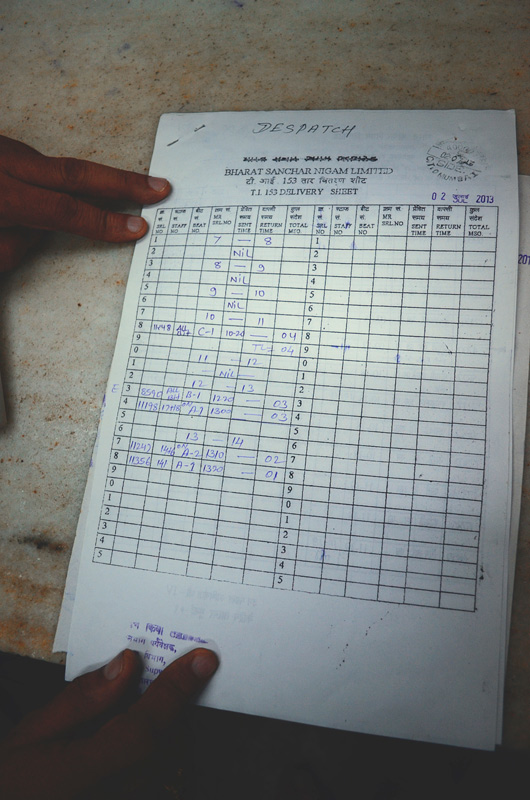 DESPATCH
BHARAT SANCHAR NIGAM LIMITED
टी. आई. 153 तार वितरण शीट
T.I. 153 DELIVERY SHEET
2013
क्र. सं. स्टाफ सं. बीट सं. क्रम सं. प्रेषित समय वापसी समय कुल संदेश
SRL NO STAFF NO BEAT NO MR SRL NO SENT TIME RETURN TIME TOTAL MSG. SRL NO STAFF NO BEAT NO MR SRL NO SENT TIME RETURN TIME TOTAL MSG.
1 7 — 8 1
2 NiL 2
3 8 — 9 3
4 NiL 4
5 9 — 10 5
6 NiL 6
7 10 — 11 7
8 C-1 10-20 — 04 8
9 04 9
0 11 — 12 0
1 — NiL — 1
2 12 — 13 2
3 8590 B-1 1220 — 03 3
4 11198 A-1 1300 — 03 4
5 5
6 13 — 14 6
7 11242 A-2 1310 — 02 7
8 11356 141 A-1 1320 — 01 8
9 9
0 0
1 1
2 2
3 3
4 4
5 5